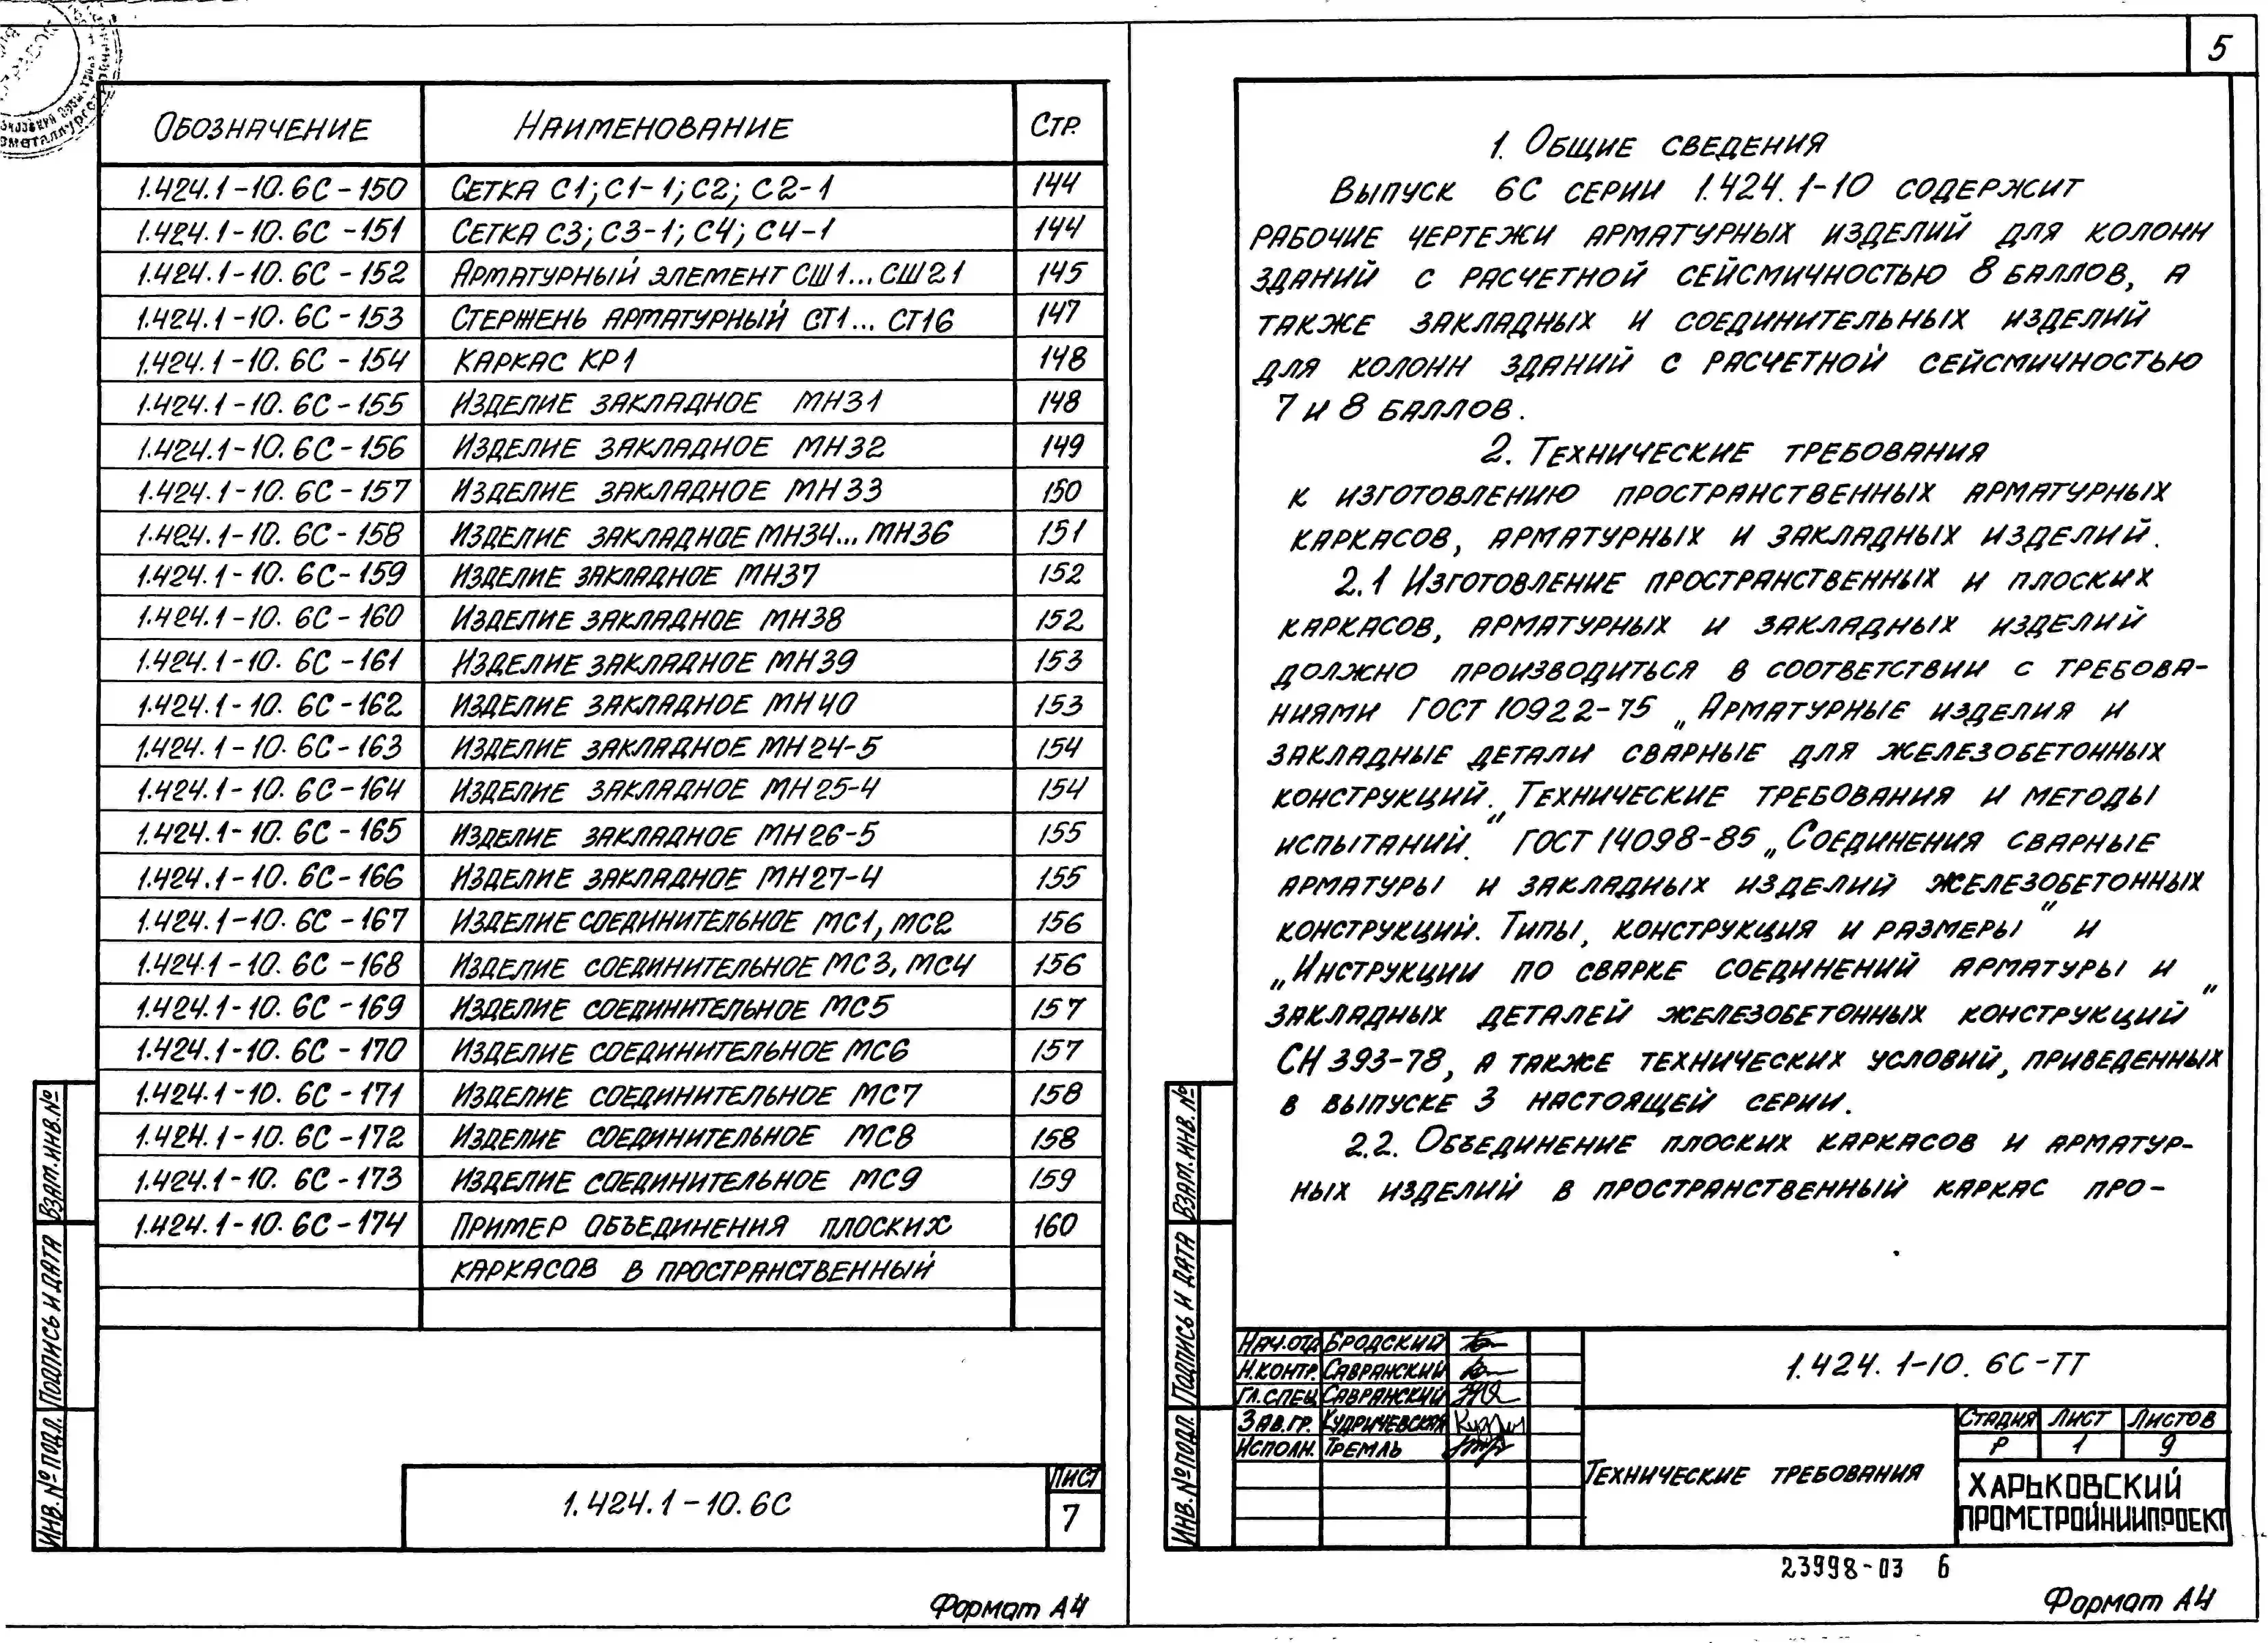 Обозначение Наименование Стр.
1.424.1-10.6С-150 Сетка С1; С1-1; С2; С2-1 144
1.424.1-10.6С-151 Сетка С3; С3-1; С4; С4-1 144
1.424.1-10.6С-152 Арматурный элемент СШ1...СШ21 145
1.424.1-10.6С-153 Стержень арматурный СТ1...СТ16 147
1.424.1-10.6С-154 Каркас КР1 148
1.424.1-10.6С-155 Изделие закладное МН31 148
1.424.1-10.6С-156 Изделие закладное МН32 149
1.424.1-10.6С-157 Изделие закладное МН33 150
1.424.1-10.6С-158 Изделие закладное МН34...МН36 151
1.424.1-10.6С-159 Изделие закладное МН37 152
1.424.1-10.6С-160 Изделие закладное МН38 152
1.424.1-10.6С-161 Изделие закладное МН39 153
1.424.1-10.6С-162 Изделие закладное МН40 153
1.424.1-10.6С-163 Изделие закладное МН24-5 154
1.424.1-10.6С-164 Изделие закладное МН25-4 154
1.424.1-10.6С-165 Изделие закладное МН26-5 155
1.424.1-10.6С-166 Изделие закладное МН27-4 155
1.424.1-10.6С-167 Изделие соединительное МС1, МС2 156
1.424.1-10.6С-168 Изделие соединительное МС3, МС4 156
1.424.1-10.6С-169 Изделие соединительное МС5 157
1.424.1-10.6С-170 Изделие соединительное МС6 157
1.424.1-10.6С-171 Изделие соединительное МС7 158
1.424.1-10.6С-172 Изделие соединительное МС8 158
1.424.1-10.6С-173 Изделие соединительное МС9 159
1.424.1-10.6С-174 Пример объединения плоских 160
каркасов в пространственный
Инв. № подл. Подпись и дата Взам. инв. №
1.424.1-10.6С
Лист
7
Формат А4
5
1. Общие сведения
Выпуск 6С серии 1.424.1-10 содержит
рабочие чертежи арматурных изделий для колонн
зданий с расчетной сейсмичностью 8 баллов, а
также закладных и соединительных изделий
для колонн зданий с расчетной сейсмичностью
7 и 8 баллов.
2. Технические требования
к изготовлению пространственных арматурных
каркасов, арматурных и закладных изделий.
2.1 Изготовление пространственных и плоских
каркасов, арматурных и закладных изделий
должно производиться в соответствии с требова-
ниями ГОСТ 10922-75 „Арматурные изделия и
закладные детали сварные для железобетонных
конструкций. Технические требования и методы
испытаний." ГОСТ 14098-85 „Соединения сварные
арматуры и закладных изделий железобетонных
конструкций. Типы, конструкция и размеры" и
„Инструкции по сварке соединений арматуры и
закладных деталей железобетонных конструкций"
СН 393-78, а также технических условий, приведенных
в выпуске 3 настоящей серии.
2.2. Объединение плоских каркасов и арматур-
ных изделий в пространственный каркас про-
Инв. № подл. Подпись и дата Взам. инв. №
Нач.отд Бродский
Н.контр. Савранский
Гл.спец Савранский
Зав.гр. Кудричевская
Исполн. Тремль
1.424.1-10.6С-ТТ
Технические требования
Стадия Лист Листов
Р 1 9
ХАРЬКОВСКИЙ
ПРОМСТРОЙНИИПРОЕКТ
23998-03 6
Формат А4